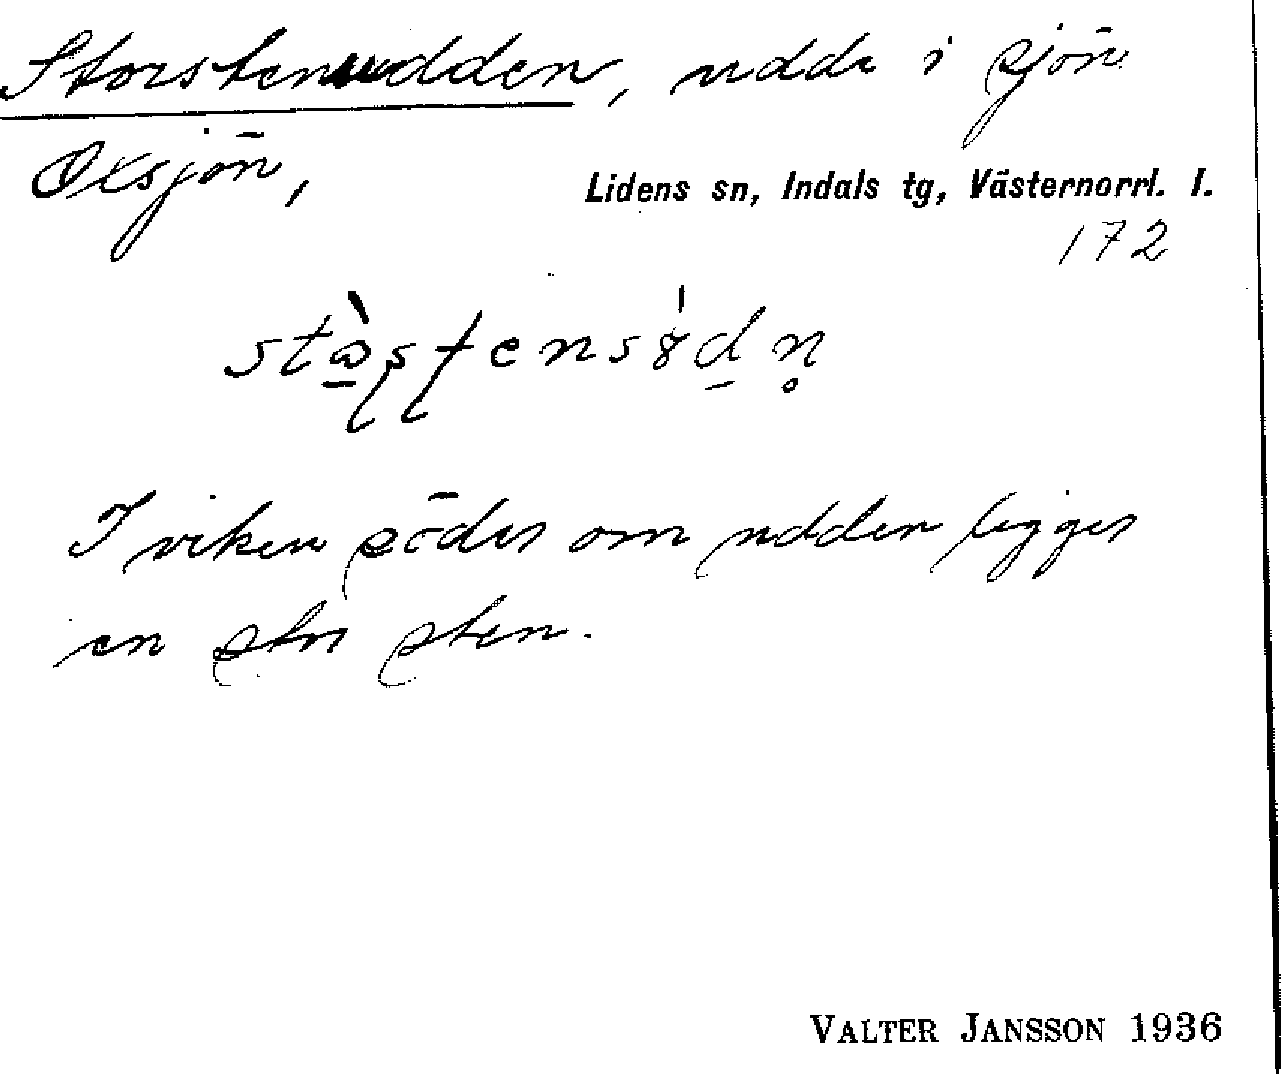 Storstenudden, udde i sjön
Oxsjön,
Lidens sn, Indals tg, Västernorrl. l.
172
I viken söder om udden ligger
en stor sten.
VALTER JANSSON 1936